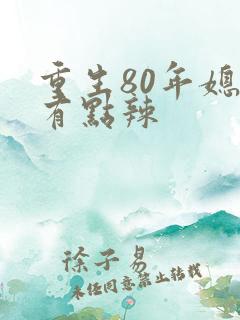 重生80年媳
有點辣
徐子易
未经同意禁止转载